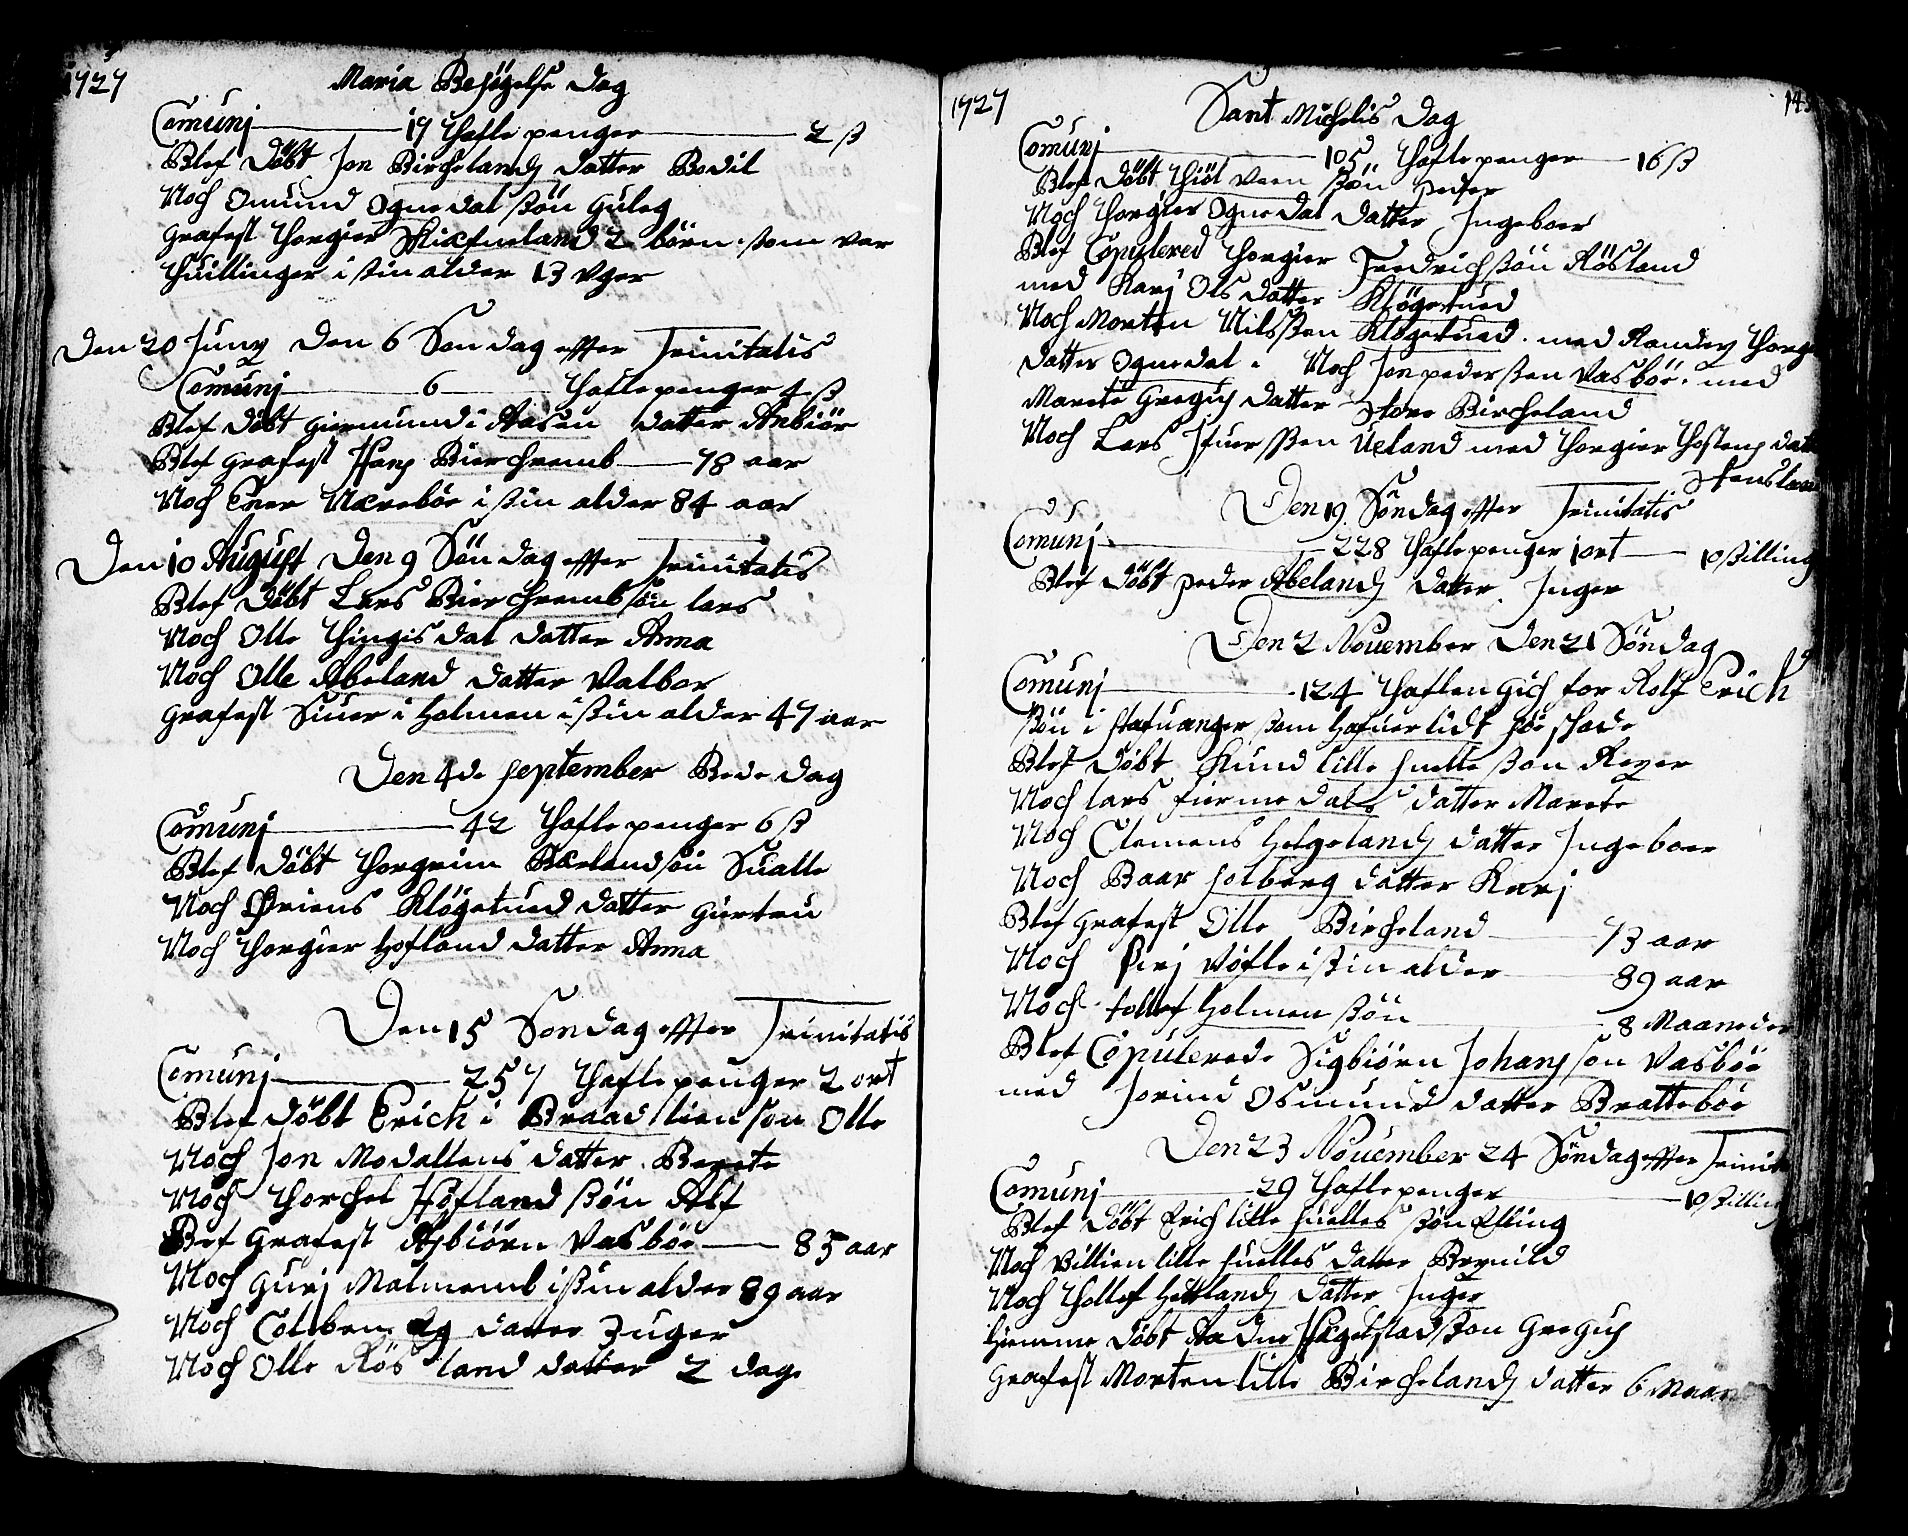 1727
Maria Besögelse Dag
Comunj 17 Tafle penger 2 ß
Blef döbt Jon Birchelands datter Bodil
Noch Omund Ognedal ßön Guleg
Grafest Torgier Skiæfueland 2 börn som var
Tuillinger i ßin alder 13 Uger
Den 20 Juny Den 6 Sondag effter Trinitatis
Comunj 6 Tafle penger 4 ß
Blef döbt Giermund i Aasen datter Anbiör
Blef grafest Hans Bierchremb 78 aar
Noch Ener Næreböe i ßin alder 84 aar
Den 10 August Den 9 Söndag effter Trinitatis
Blef döbt Lars Bierchremb sön lars
Noch Olle Tingisdal datter Anna
Noch Olle Abeland datter Valbor
grafest Siuer i Holmen i ßin alder 47 aar
Den 4de September Bede dag
Comunj 42 Tafle penger 6 ß
Blef döbt Torgrim Bærland sön Sualle
Noch Öriens Klögetued datter Giertru
Noch Torgier Hofland datter Anna
Den 15 Sondag effter Trinitatis
Comunj 257 Tafle penger 2 ort
Blef döbt Erich i Braadlien son Olle
Noch Jon Modallens datter Berete
Noch Torchel Höfland ßön Alf
Blef Grafest Asbiörn Vasböe 85 aar
Noch Gurj Malmemb i ßin alder 89 aar
Noch Colben datter Inger
Noch Olle Rösland datter 2 dage
1727
Sant Michelis Dag
Comunj 105 Tafle penger 16 ß
Blef döbt Tiöl Veen ßön peder
Noch Torgier Ognedal datter Ingeboer
Blef Copulered Torgier Fredrichßön Rösland
med Karj Ols datter Klögetued
Noch Morten Nilsßen Klögetued med Randey Torge
datter Ognedal. Noch Jon pederßen Vasböe med
Marete Gregus datter Store Bircheland
Noch Lars Ifuersßen Ueland med Torgier Tostens dat
Stensland
Den 19 Söndag effter Trinitatis
Comunj 228 Tafle penger 1 ort 10 ßilling
Blef döbt peder Abelands datter Inger
Den 2 Nouember Den 21 Söndag
Comunj 124 Taflen gich for Rolf Erich
ßön i Stafuanger ßom hafuer lidt söe skade
Blef döbt Knud lille Suelle ßon Reyer
Noch lars fiermedals datter Marete
Noch Clemens Helgelands datter Ingeboer
Noch Baar Solberg datter Karj
Blef Grafest Olle Bircheland 73 aar
Noch Sirj Vöfle i ßin alder 89 aar
Noch tollef Holmen ßön 8 Maaneder
Blef Copulerede Sigbiörn Johans son Vasböe
med Jorind Osmund datter Bratteböe
Den 23 Nouember 24 Söndag effter Trinit
Comunj 29 Tafle penger 10 ßilling
Blef döbt Erich lille Suelles ßön Elling
Noch Villien lille Suelles datter Brynild
Noch Tollef Hettlands datter Inger
hiemme döbt Aadne Hægelstad ßon Gregus
Grafest Morten lille Birchelands datter 6 Maan